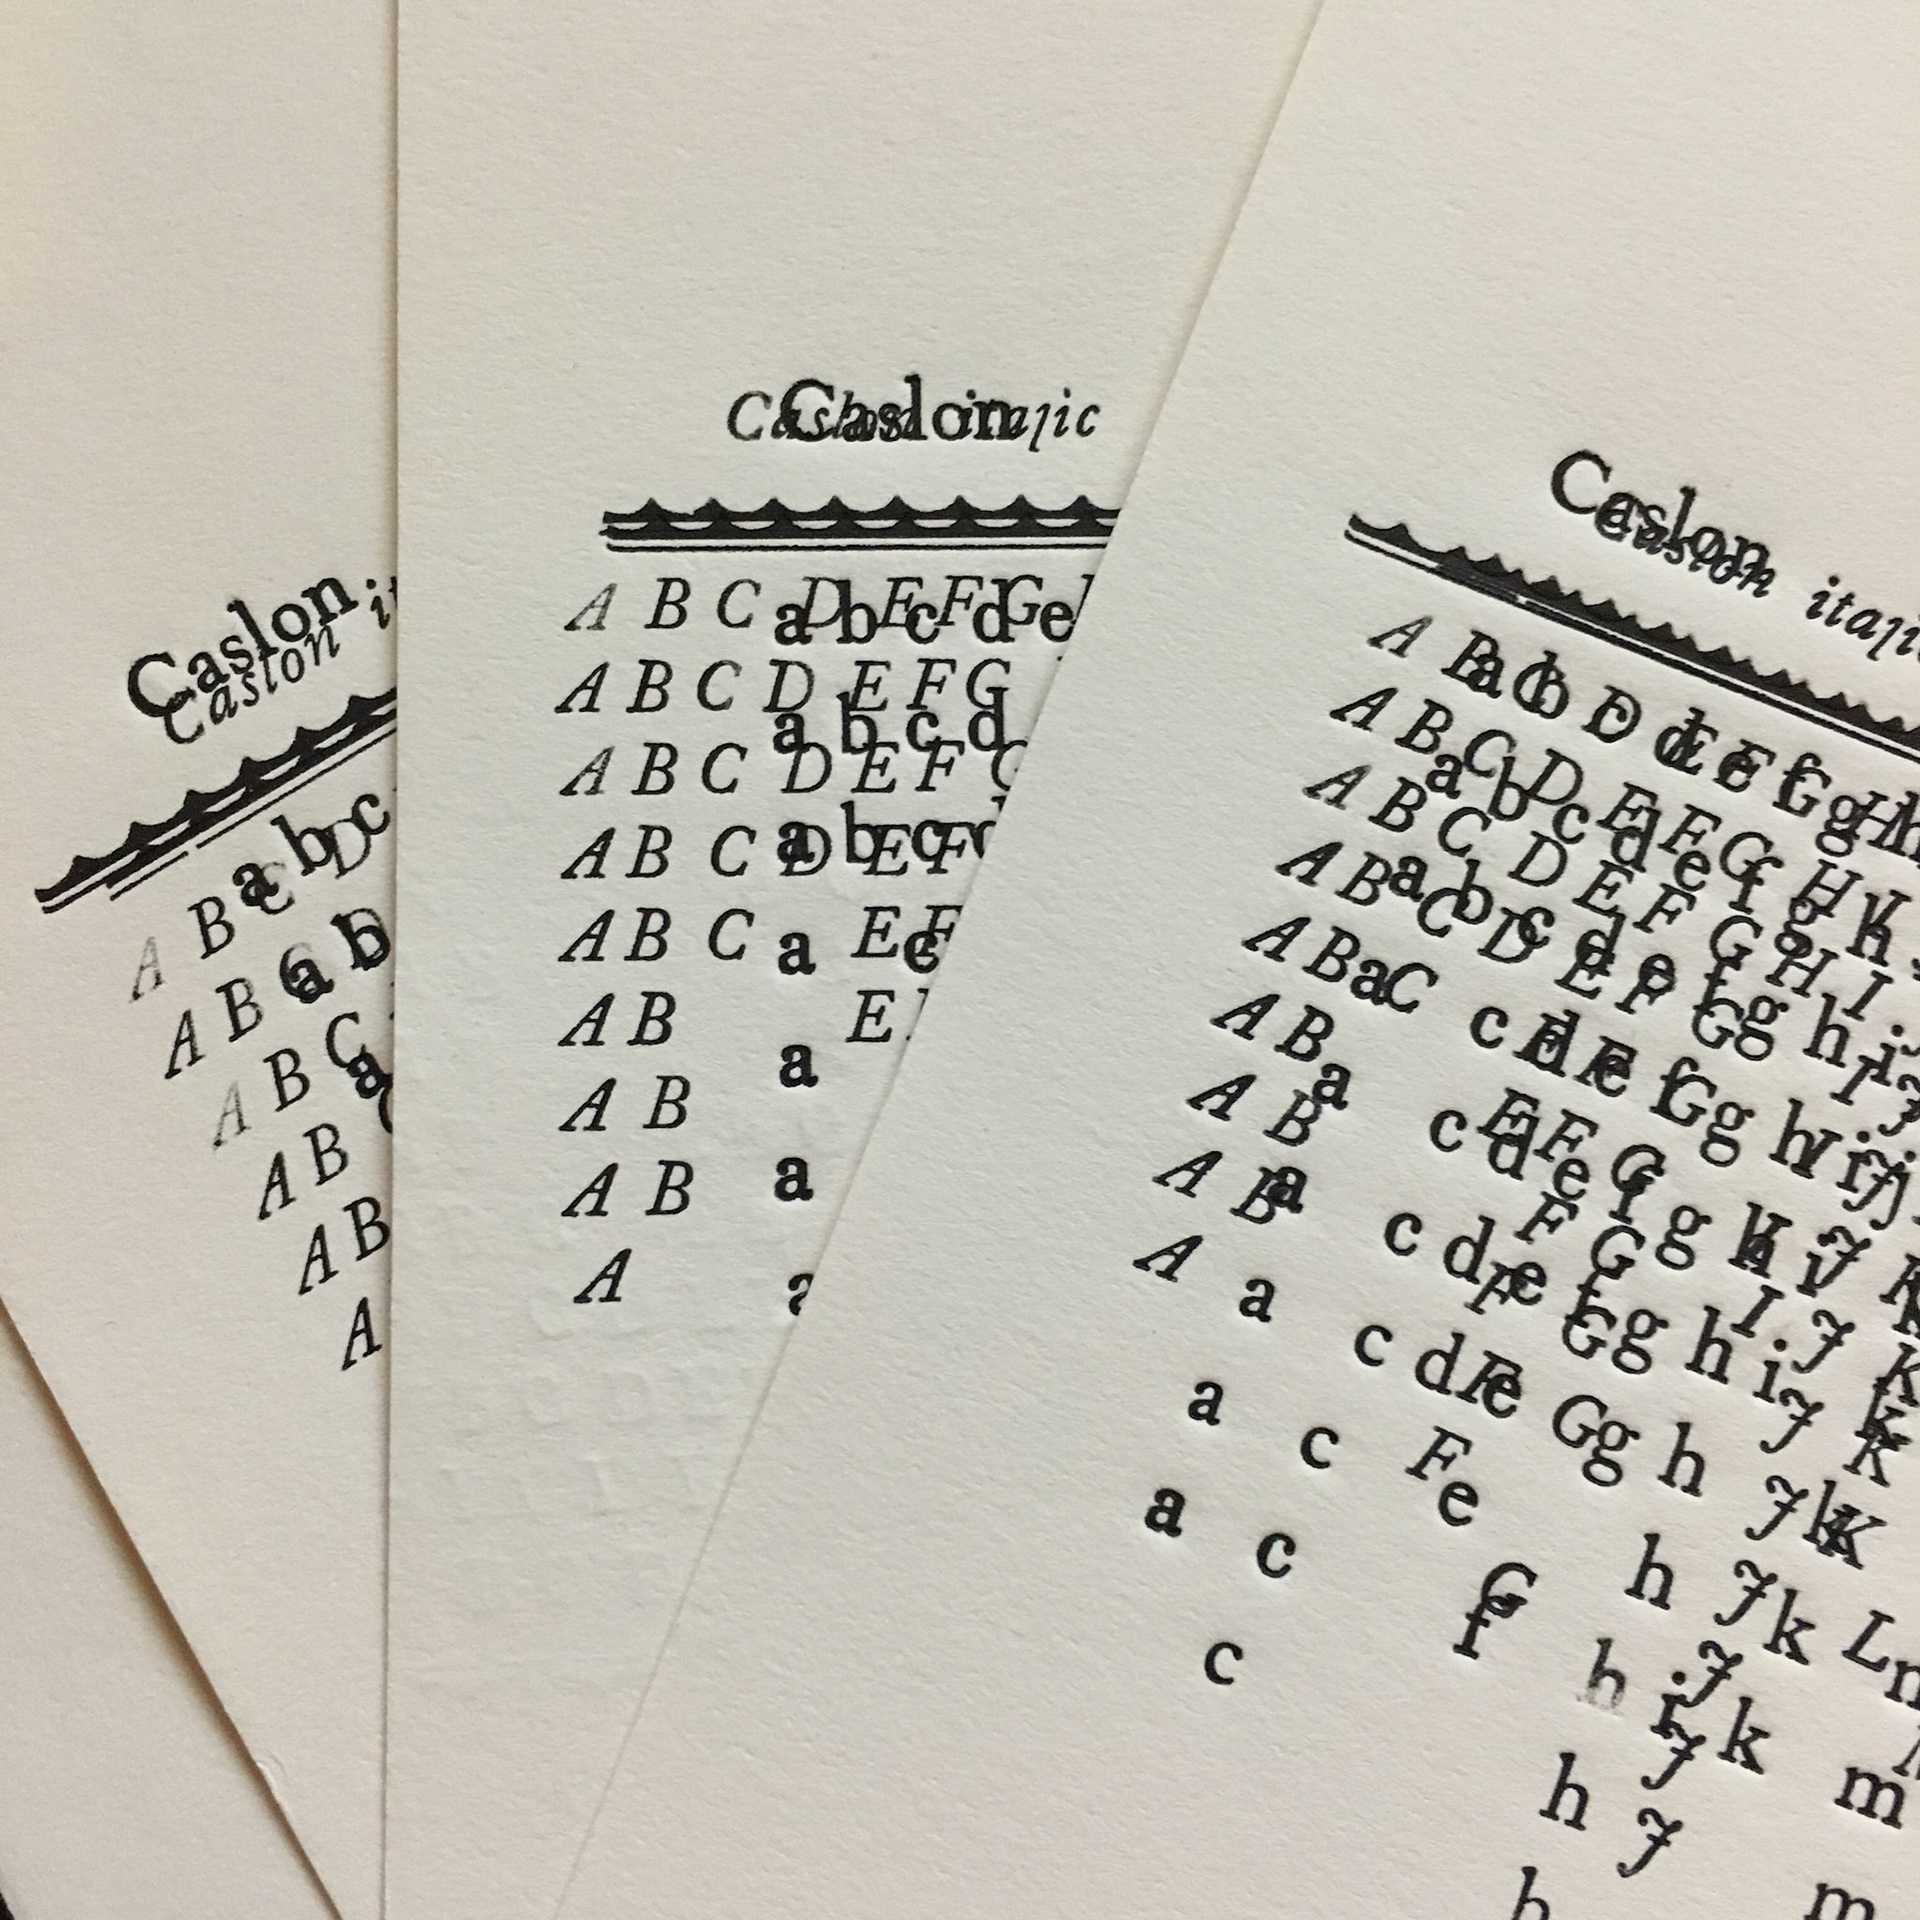 Caslon
Caslon
A B a C b D c
A B C a D b
A B C
a
A B
A B
A
Caslon italic
Caslon
A B C D E F G
a b c d e
A B C D E F G
a b c d
A B C D E F
A B C D E F
a b c
A B C E F
a c
A B E
a
A B
A B
a
A
Caslon
Caslon italic
A B C D E F G H
a b c d e f g h
A B C D E F G H
a b c d e f g h
A B C D E F G H I
A B C D E F G I
a b c d e f g h i
A B C E F G I J
a c d e f g h i j
A B E F G
a c d e f g h i
A B F G I J K
a c d e f g h i k
A B F G J K
A
a c d e g h k
F G J K
a c e h k
F J L
a c f h i k
G J
c h m
J
h m